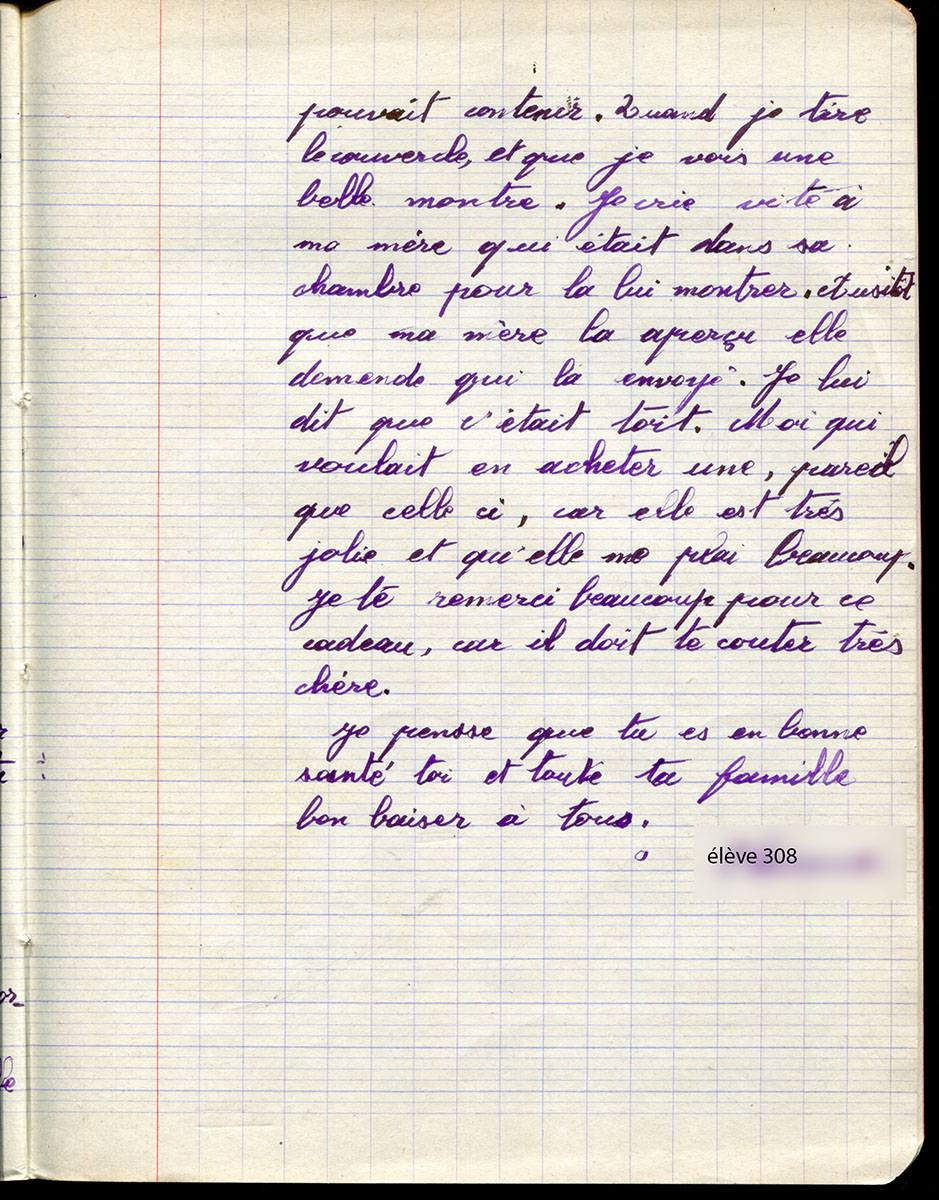 pouvait contenir. Quand je tire
le couvercle, et que je vois une
belle montre. Je crie vite à
ma mère qui était dans sa
chambre pour la lui montrer. Ausitôt
que ma mère la aperçu elle
demende qui la envoyé. Je lui
dit que c'était toit. Moi qui
voulait en acheter une, pareil
que celle ci, car elle est trés
jolie et qu'elle me plai beaucoup.
Je te remerci beaucoup pour ce
cadeau, car il doit te couter trés
chére.
Je pensse que tu es en bonne
santé toi et toute ta famille
bon baiser à tous.
élève 308